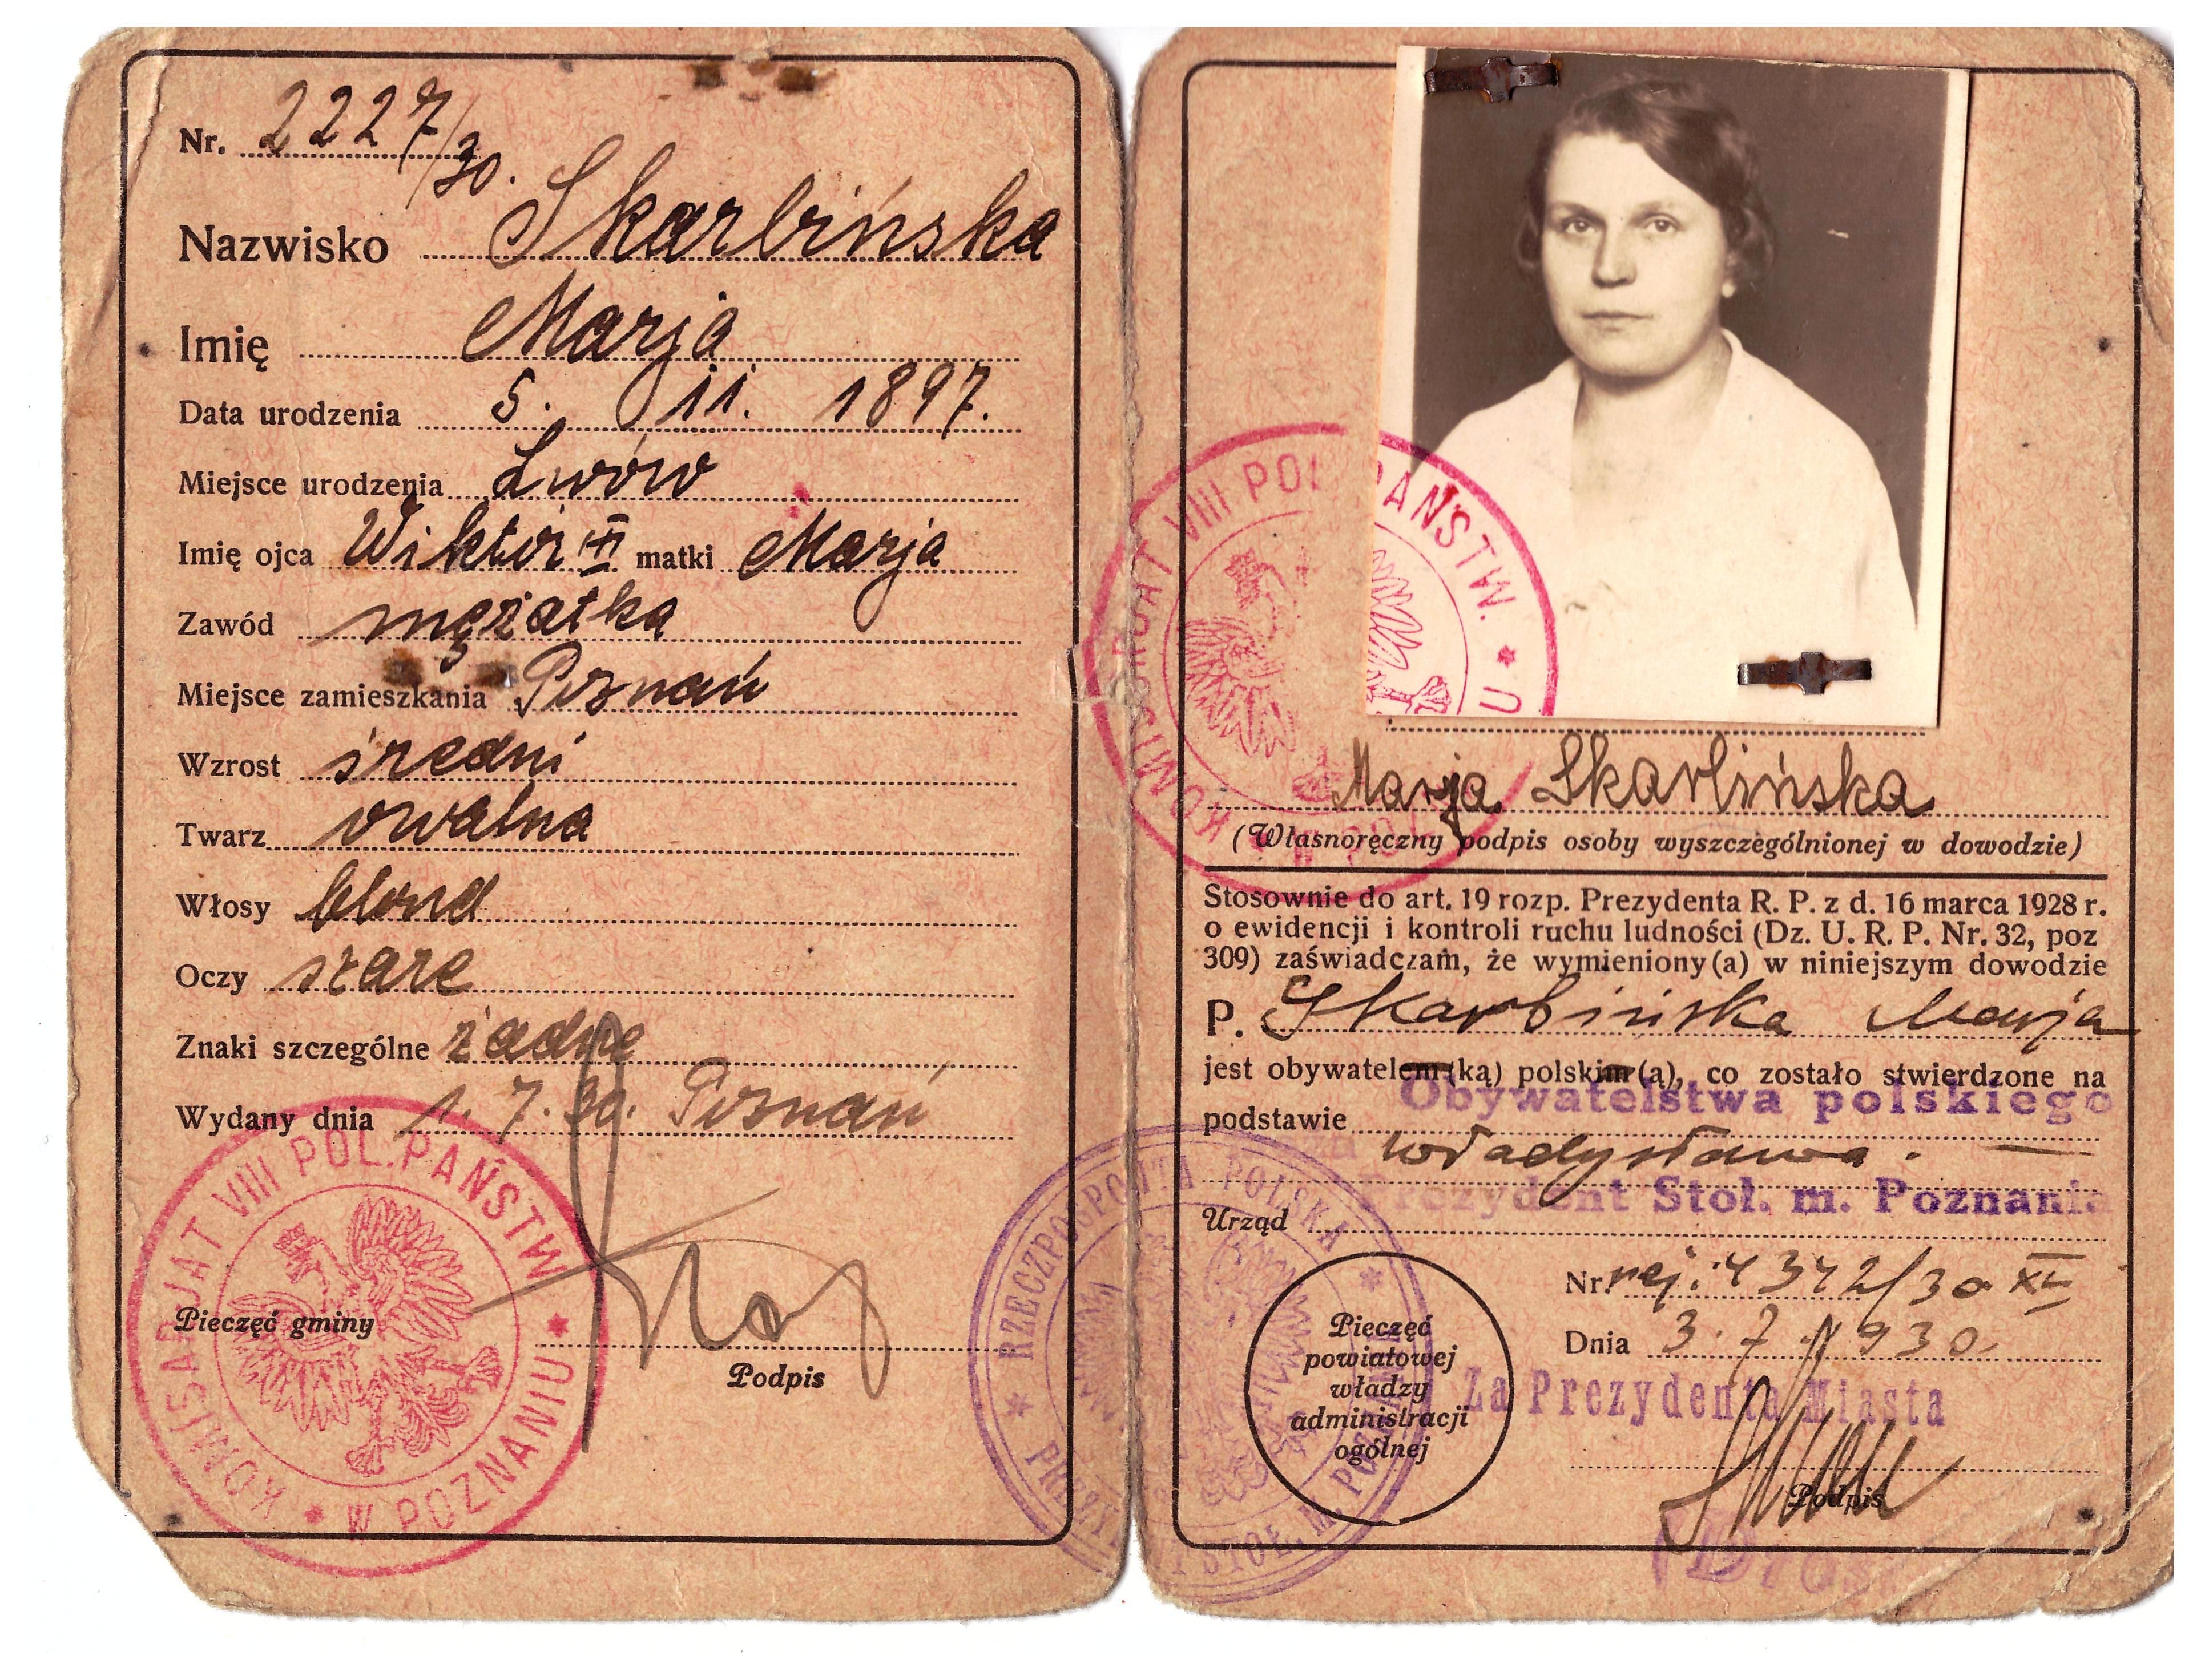 Nr. 2227/30.
Nazwisko Skarbińska
Imię Marja
Data urodzenia 5. 11. 1897.
Miejsce urodzenia Lwów
Imię ojca Wiktor matki Marja
Zawód mężatka
Miejsce zamieszkania Poznań
Wzrost średni
Twarz owalna
Włosy blond
Oczy szare
Znaki szczególne żadne
Wydany dnia 1. 7. 30. Poznań
KOMISARJAT VIII POL. PAŃSTW. W POZNANIU
Pieczęć gminy
Podpis
KOMISARJAT VIII POL. PAŃSTW.
Marja Skarbińska
(Własnoręczny podpis osoby wyszczególnionej w dowodzie)
Stosownie do art. 19 rozp. Prezydenta R. P. z d. 16 marca 1928 r.
o ewidencji i kontroli ruchu ludności (Dz. U. R. P. Nr. 32, poz
309) zaświadczam, że wymieniony(a) w niniejszym dowodzie
P. Skarbińska Marja
jest obywatelem(ką) polskim(ą), co zostało stwierdzone na
podstawie Obywatelstwa polskiego
Władysława. —
Prezydent Stoł. m. Poznania
Urząd
Nr. rej. 4342/30 XII
Dnia 3. 7. 1930.
Za Prezydenta Miasta
Pieczęć
powiatowej
władzy
administracji
ogólnej
Podpis
RZECZPOSPOLITA POLSKA
STOŁ. M.